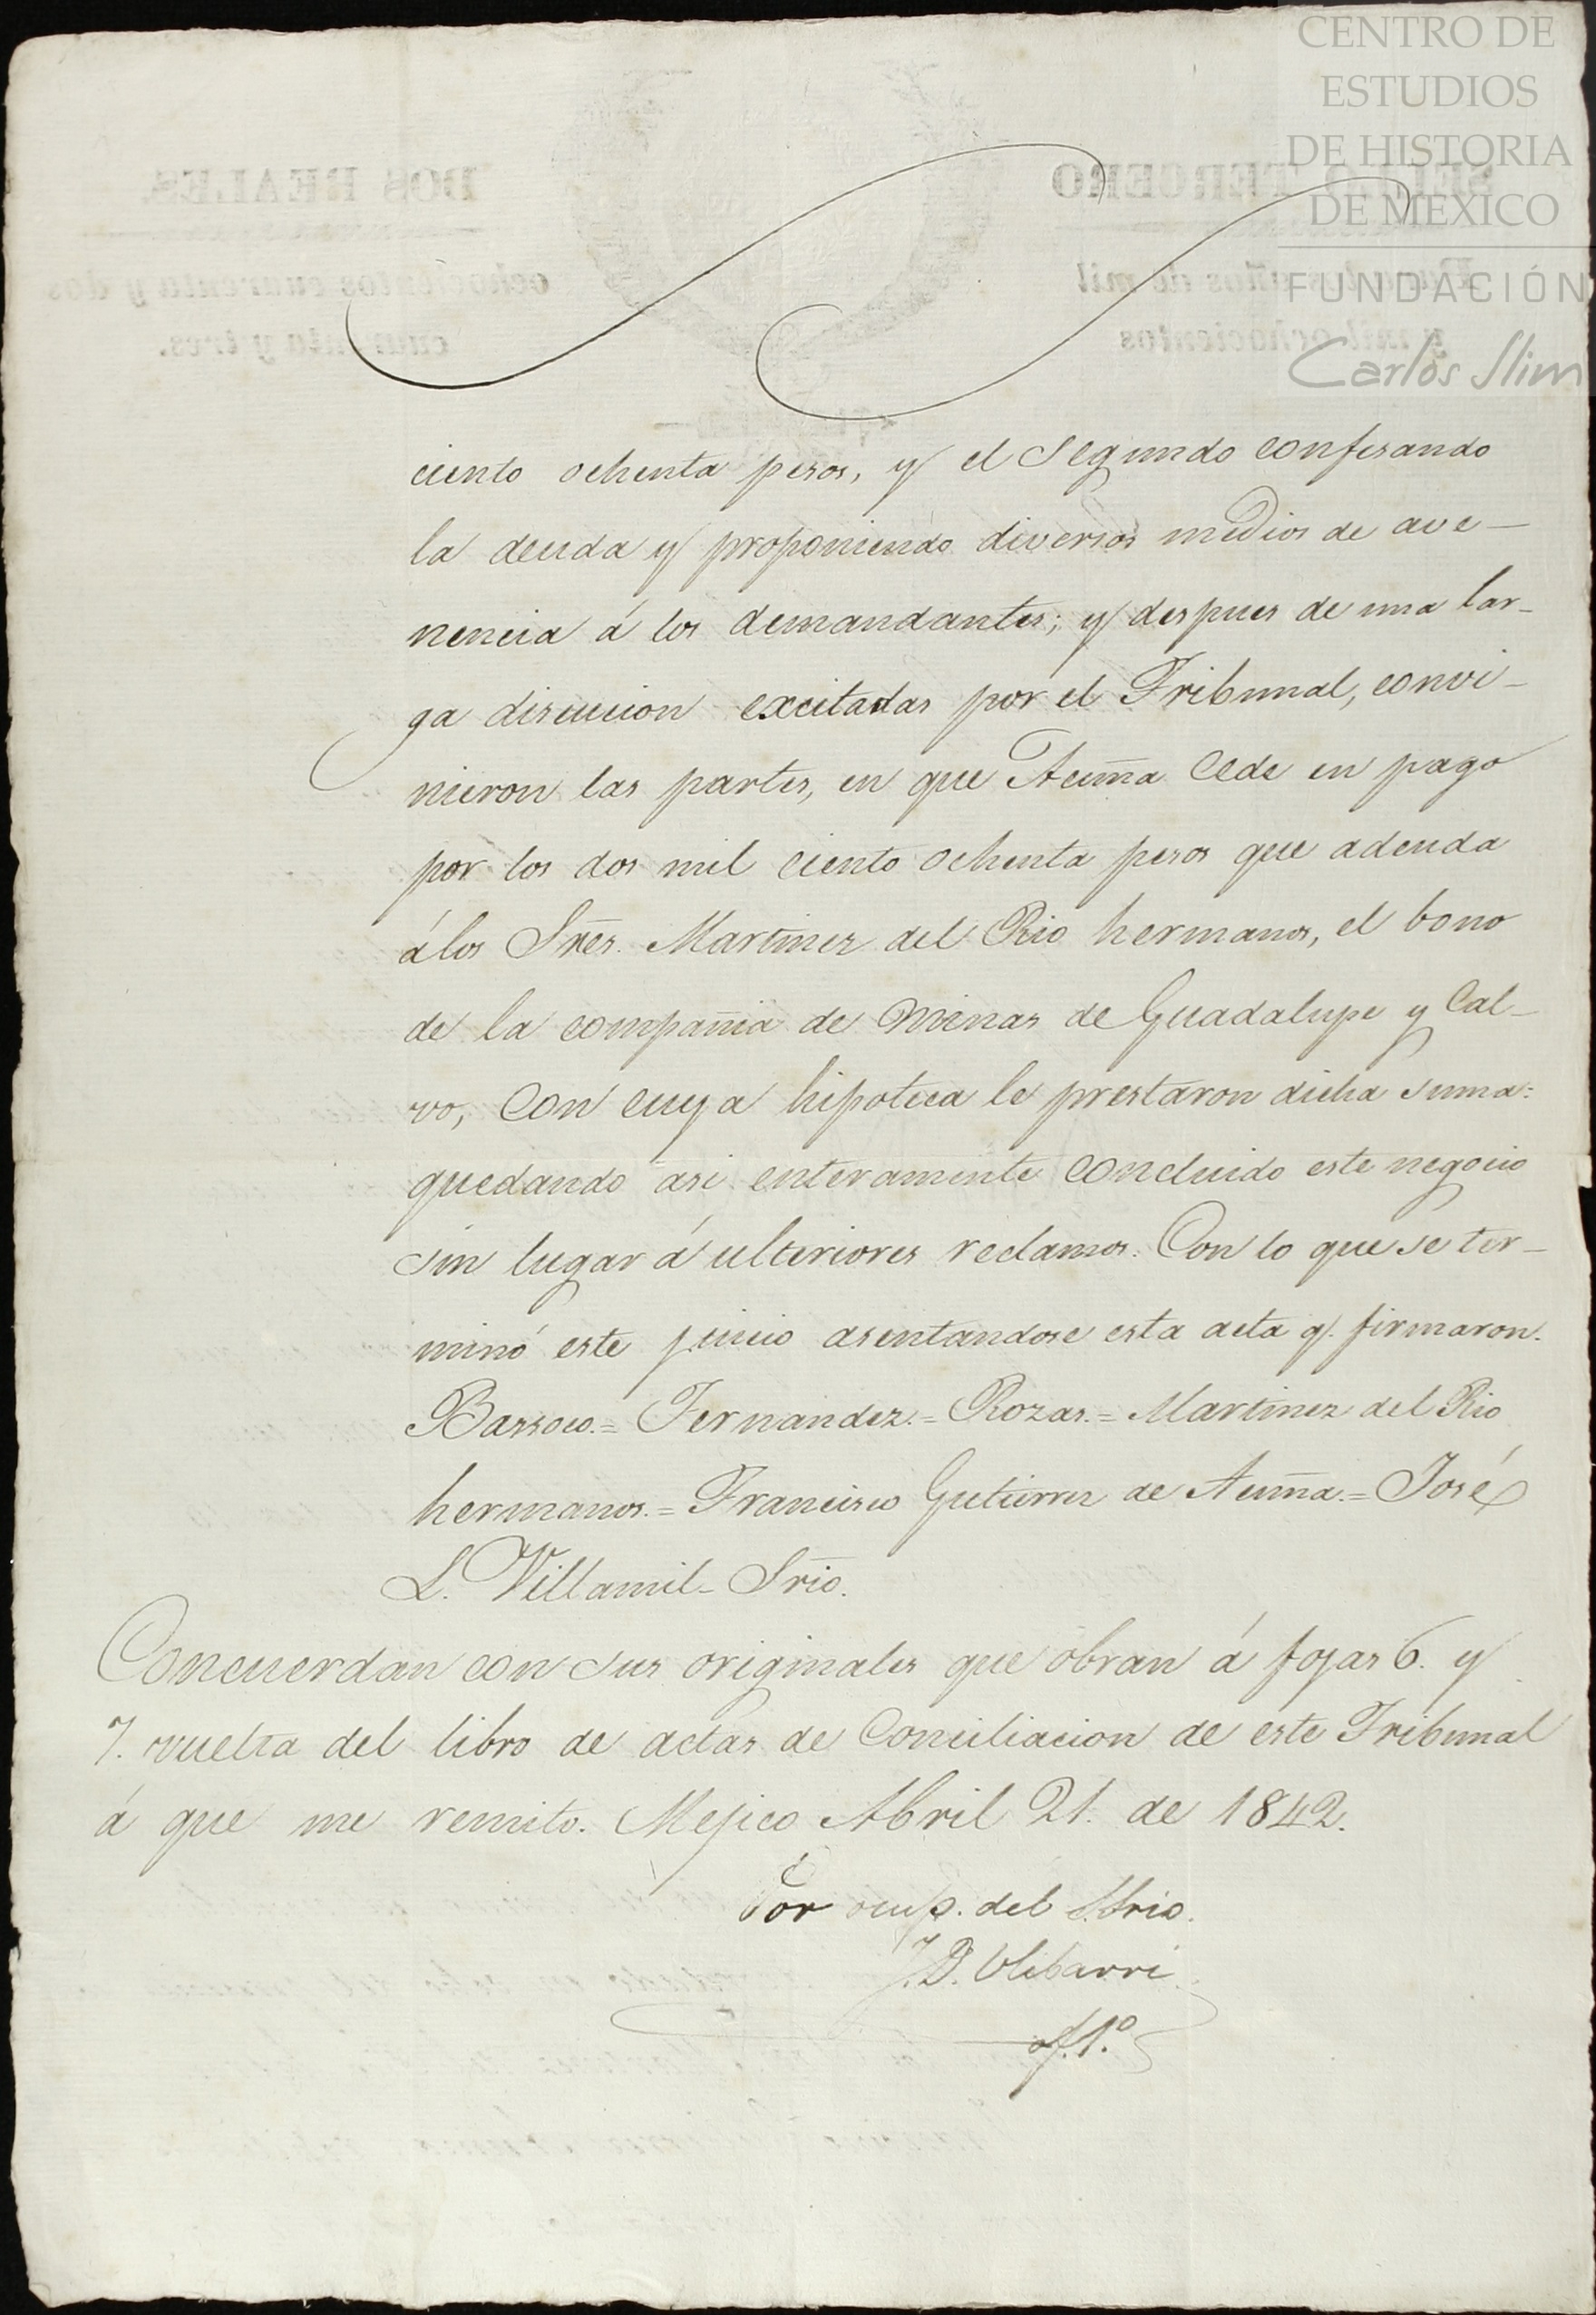 CENTRO DE
ESTUDIOS
DE HISTORIA
DE MÉXICO
FUNDACIÓN
Carlos Slim
DOS REALES.
SELLO TERCERO
ochocientos cuarenta y dos
cuarenta y tres.
años de mil
y mil ochocientos
ciento ochenta pesos, y el Segundo confesando
la deuda y proponiendo diversos medios de ave-
nencia á los demandantes; y despues de una lar-
ga discucion excitadas por el Tribunal, convi-
nieron las partes, en que Acuña cede en pago
por los dos mil ciento ochenta pesos que adeuda
á los Sres. Martinez del Rio hermanos, el bono
de la compañia de Minas de Guadalupe y Cal-
vo, con cuya hipoteca le prestaron dicha suma:
quedando asi enteramente concluido este negocio
sin lugar á ulteriores reclamos. Con lo que se ter-
minó este juicio asentandose esta acta q. firmaron.
Bassoco.= Fernandez.= Rozas.= Martinez del Rio
hermanos.= Francisco Gutierrez de Acuña.= José
L. Villamil- Srio.
Concuerdan con sus originales que obran á fojas 6. y
7. vuelta del libro de actas de Conciliacion de este Tribunal
á que me remito. Mejico Abril 21. de 1842.
Por ocup. del Srio.
J. D. Ulibarri
of. 1º